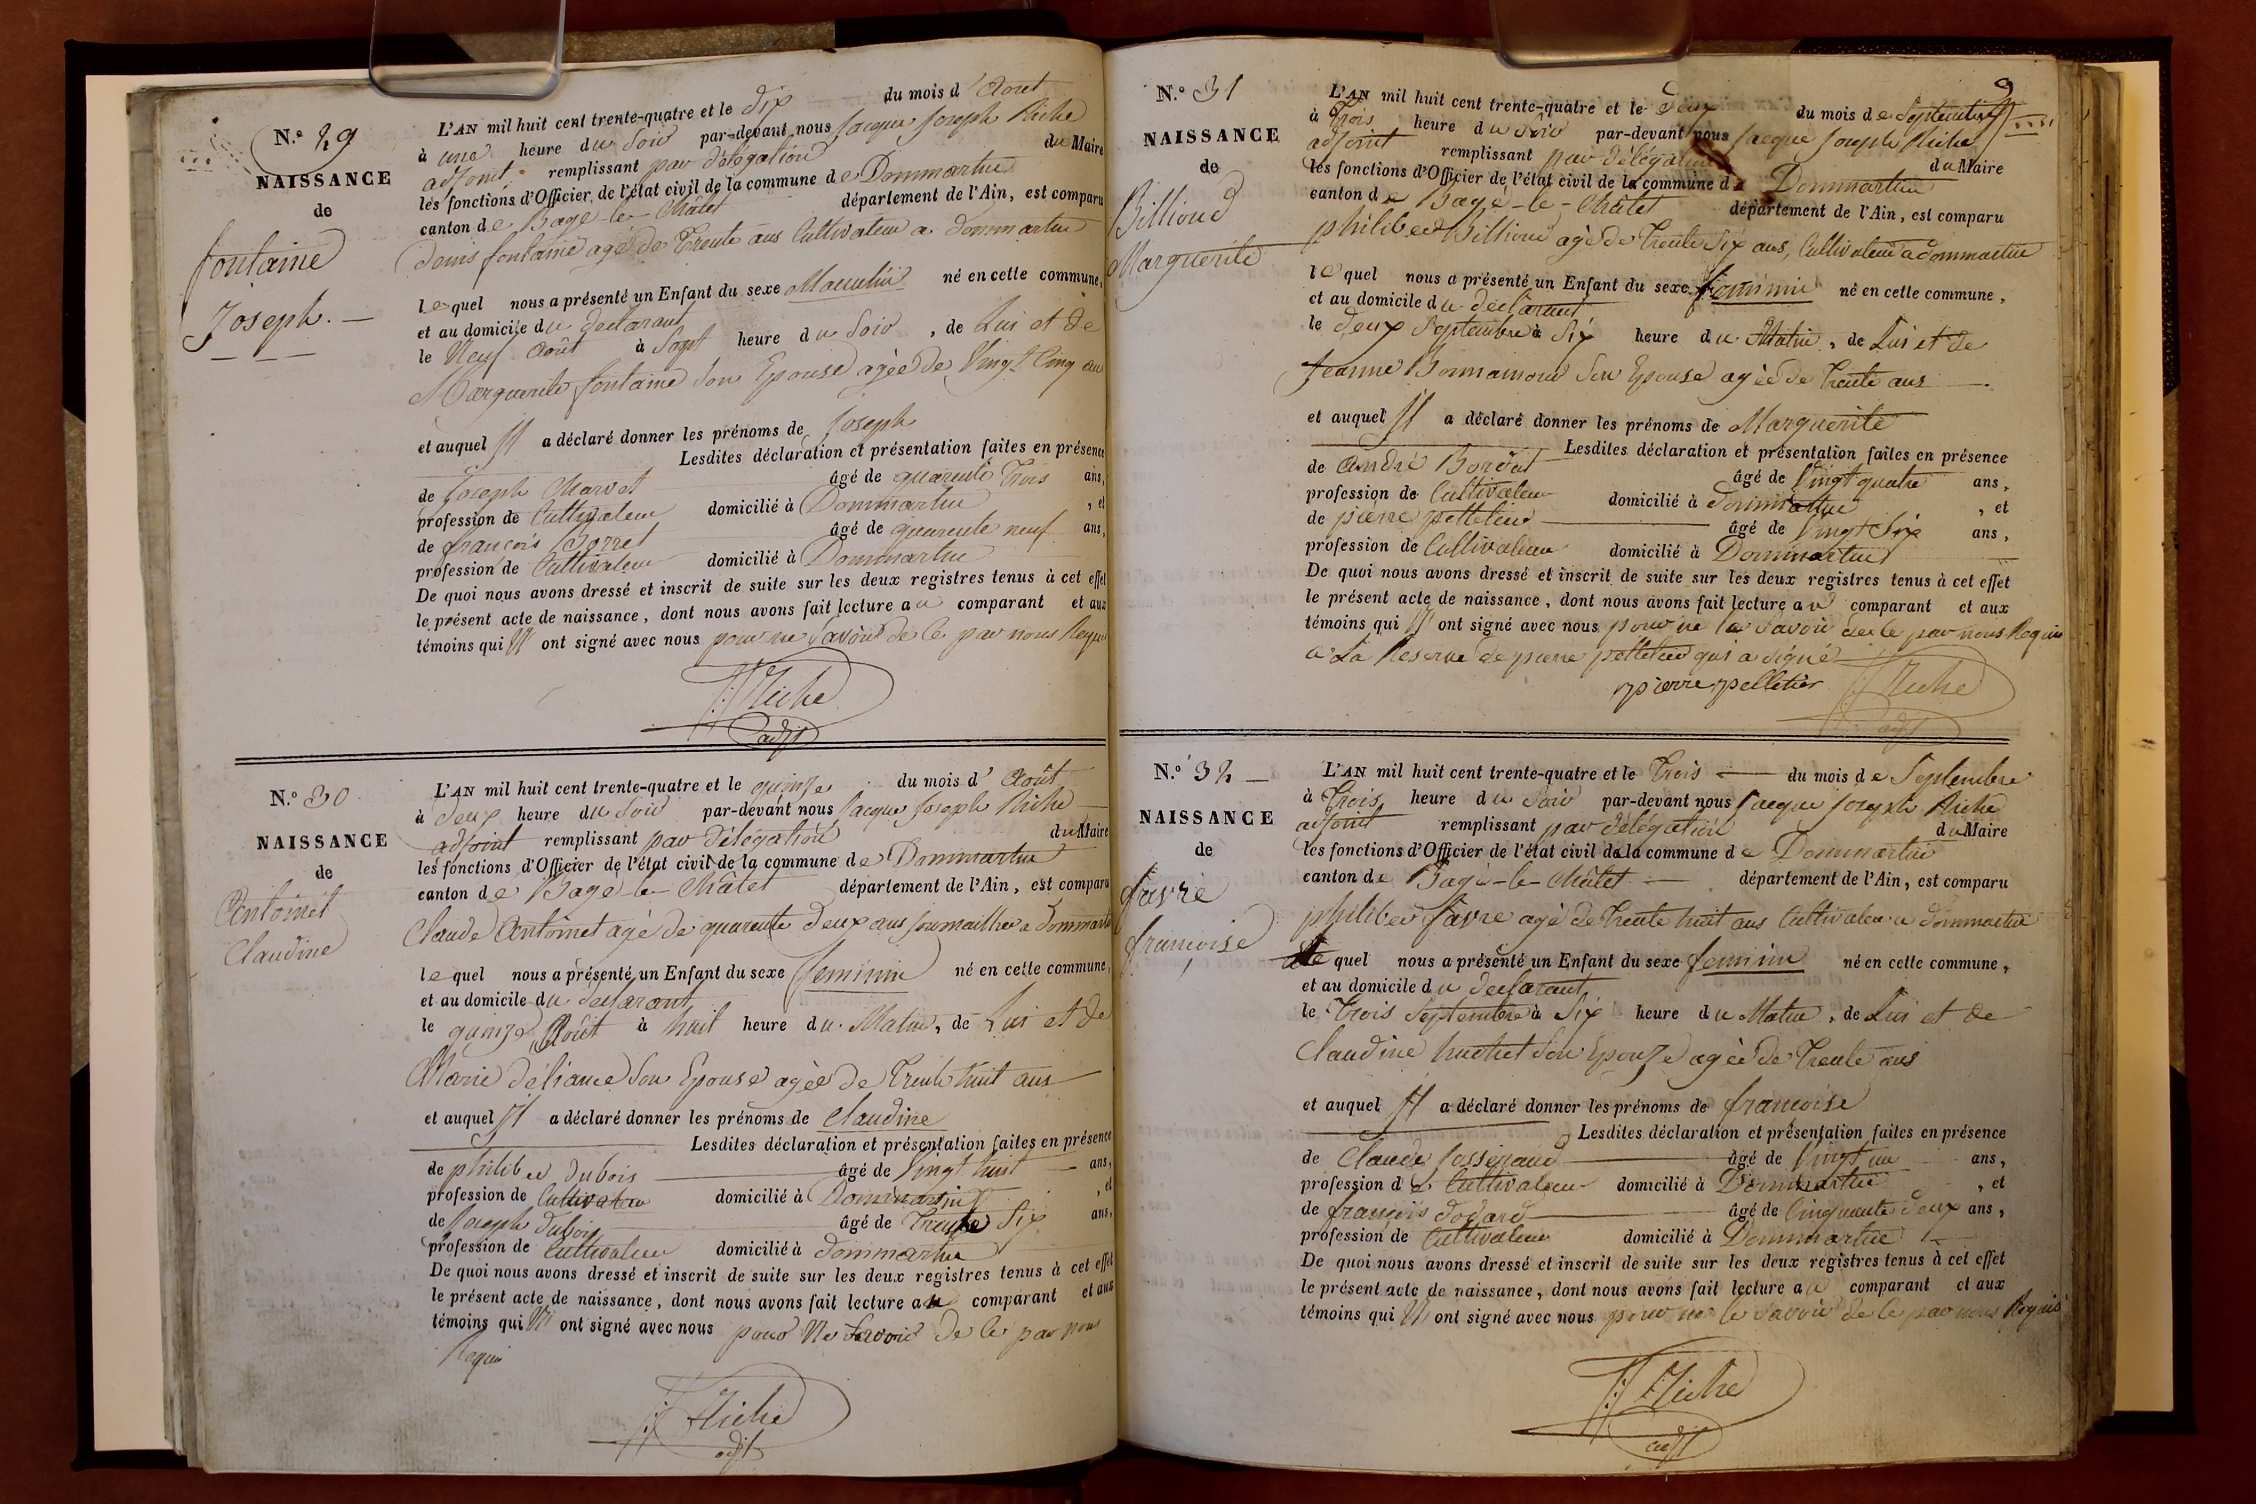 N.º 29
NAISSANCE
de
fontaine
Joseph.
L'AN mil huit cent trente-quatre et le dix du mois d'Aout
à une heure du Soir par-devant nous Jacque Joseph Riche
adjoint remplissant par délégation du Maire
les fonctions d'Officier de l'état civil de la commune de Dommartin
canton de Bagé-le-Châtel département de l'Ain, est comparu
Denis fontaine agé de Trente ans Cultivateur a dommartin
lequel nous a présenté un Enfant du sexe Masculin né en cette commune,
et au domicile du declarant
le Neuf Août à Sept heure du Soir, de Lui et de
Marguerite fontaine Son Epouse agée de Vingt Cinq ans
et auquel Il a déclaré donner les prénoms de Joseph
Lesdites déclaration et présentation faites en présence
de Joseph Marvet âgé de quarente Trois ans,
profession de Cultivateur domicilié à Dommartin, et
de françois Borret âgé de quarente neuf ans,
profession de Cultivateur domicilié à Dommartin
De quoi nous avons dressé et inscrit de suite sur les deux registres tenus à cet effet
le présent acte de naissance, dont nous avons fait lecture au comparant et aux
témoins qui N' ont signé avec nous pour ne Savoir de Ce par nous Requi
Riche
adjt
N.º 30
NAISSANCE
de
Antoinet
Claudine
L'AN mil huit cent trente-quatre et le quinze du mois d'Août
à deux heure du Soir par-devant nous Jacque Joseph Riche
adjoint remplissant par délégation du Maire
les fonctions d'Officier de l'état civil de la commune de Dommartin
canton de Bagé-le-Châtel département de l'Ain, est comparu
Claude Antoinet agé de quarente deux ans Journallier a Dommartin
lequel nous a présenté un Enfant du sexe feminin né en cette commune,
et au domicile du declarant
le quinze Août à huit heure du Matin, de Lui et de
Marie deliance Son Epouse agée de Trente huit ans
et auquel Il a déclaré donner les prénoms de Claudine
Lesdites déclaration et présentation faites en présence
de philiber Dubois âgé de Vingt huit ans,
profession de Cultivateur domicilié à Dommartin, et
de Joseph Dubois âgé de Trente Six ans,
profession de Cultivateur domicilié à dommartin
De quoi nous avons dressé et inscrit de suite sur les deux registres tenus à cet effet
le présent acte de naissance, dont nous avons fait lecture au comparant et aux
témoins qui N' ont signé avec nous pour Ne Savoir De Ce par nous
Requi
Riche
adjt
9
N.º 31
NAISSANCE
de
Billioud
Marguerite
L'AN mil huit cent trente-quatre et le Deux du mois de Septembre
à Trois heure du Soir par-devant nous Jacque Joseph Riche
adjoint remplissant par délégation du Maire
les fonctions d'Officier de l'état civil de la commune de Dommartin
canton de Bagé-le-Châtel département de l'Ain, est comparu
philiber Billioud agé de Trente Six ans, Cultivateur a dommartin
lequel nous a présenté un Enfant du sexe feminin né en cette commune,
et au domicile du declarant
le deux Septembre à Six heure du Matin, de Lui et de
Jeanne Bonnamour Son Epouse agée de Trente ans
et auquel Il a déclaré donner les prénoms de Marguerite
Lesdites déclaration et présentation faites en présence
de André Bordat âgé de Vingt quatre ans,
profession de Cultivateur domicilié à dommartin, et
de pierre pelletier âgé de Vingt Six ans,
profession de Cultivateur domicilié à Dommartin
De quoi nous avons dressé et inscrit de suite sur les deux registres tenus à cet effet
le présent acte de naissance, dont nous avons fait lecture au comparant et aux
témoins qui N' ont signé avec nous pour ne le Savoir de Ce par nous Requis
a La Reserve de pierre pelletier qui a signé
pierre pelletier Riche
adjt
N.º 32
NAISSANCE
de
favre
françoise
L'AN mil huit cent trente-quatre et le Trois du mois de Septembre
à Trois heure du Soir par-devant nous Jacque Joseph Riche
adjoint remplissant par délégation du Maire
les fonctions d'Officier de l'état civil de la commune de Dommartin
canton de Bagé-le-Châtel département de l'Ain, est comparu
philiber favre agé de Trente huit ans Cultivateur a dommartin
lequel nous a présenté un Enfant du sexe feminin né en cette commune,
et au domicile du declarant
le Trois Septembre à Six heure du Matin, de Lui et de
Claudine huchet Son Epouze agée de Trente ans
et auquel Il a déclaré donner les prénoms de françoise
Lesdites déclaration et présentation faites en présence
de Claude Josserand âgé de Vingt un ans,
profession de Cultivateur domicilié à Dommartin, et
de françois dodard âgé de Cinquante deux ans,
profession de Cultivateur domicilié à Dommartin
De quoi nous avons dressé et inscrit de suite sur les deux registres tenus à cet effet
le présent acte de naissance, dont nous avons fait lecture au comparant et aux
témoins qui N' ont signé avec nous pour ne le Savoir de Ce par nous Requis
Riche
adjt